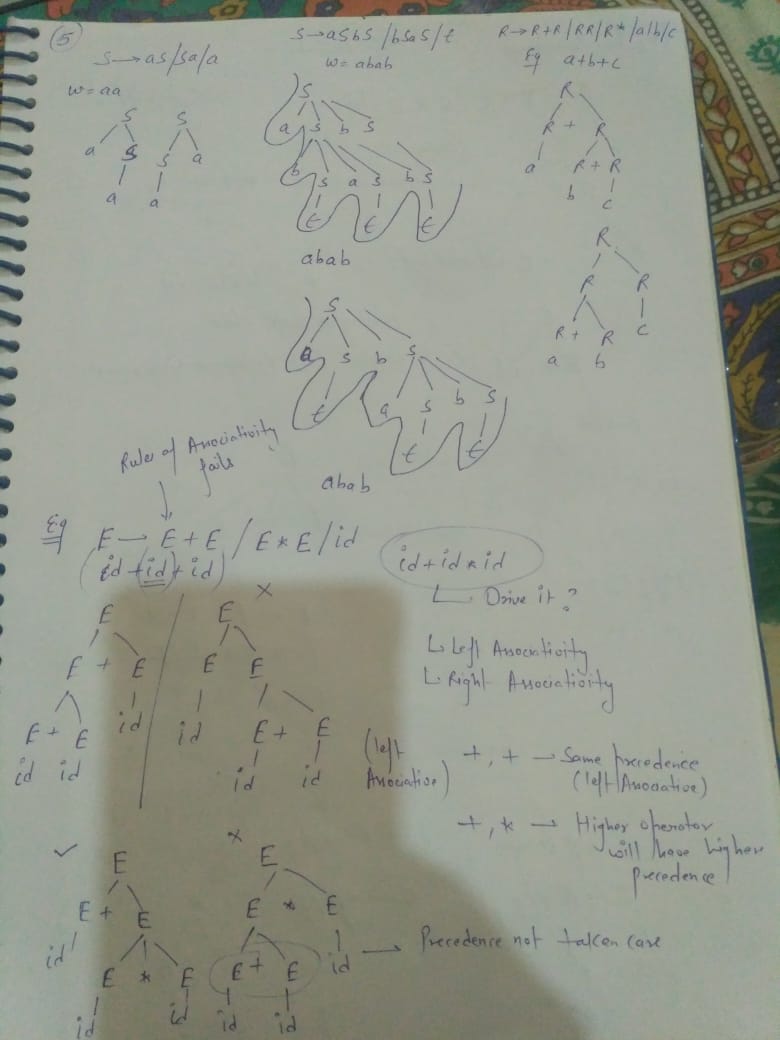 5
S → aS/Sa/a
w = aa
S
a S
a
S
S a
a
S → aSbS / bSaS / ϵ
w = abab
S
a S b S
b S a S b S
ϵ ϵ ϵ
abab
S
a S b S
ϵ a S b S
ϵ ϵ
abab
R → R+R / RR / R* / a/b/c
Eg a+b+c
R
R + R
a R + R
b c
R
R R
R + R c
a b
Rules of Associativity
fails
Eg E → E + E / E * E / id
(id + id + id)
id + id * id
↳ Drive it?
↳ Left Associativity
↳ Right Associativity
E
E + E
E + E id
id id
×
E
E E
id E + E
id id
(left
Associative)
+, + → Same precedence
(left Associative)
+, * → Higher operator
will have higher
precedence
✓
E
E + E
id E * E
id id
×
E
E * E
E + E id
id id
→ Precedence not taken care